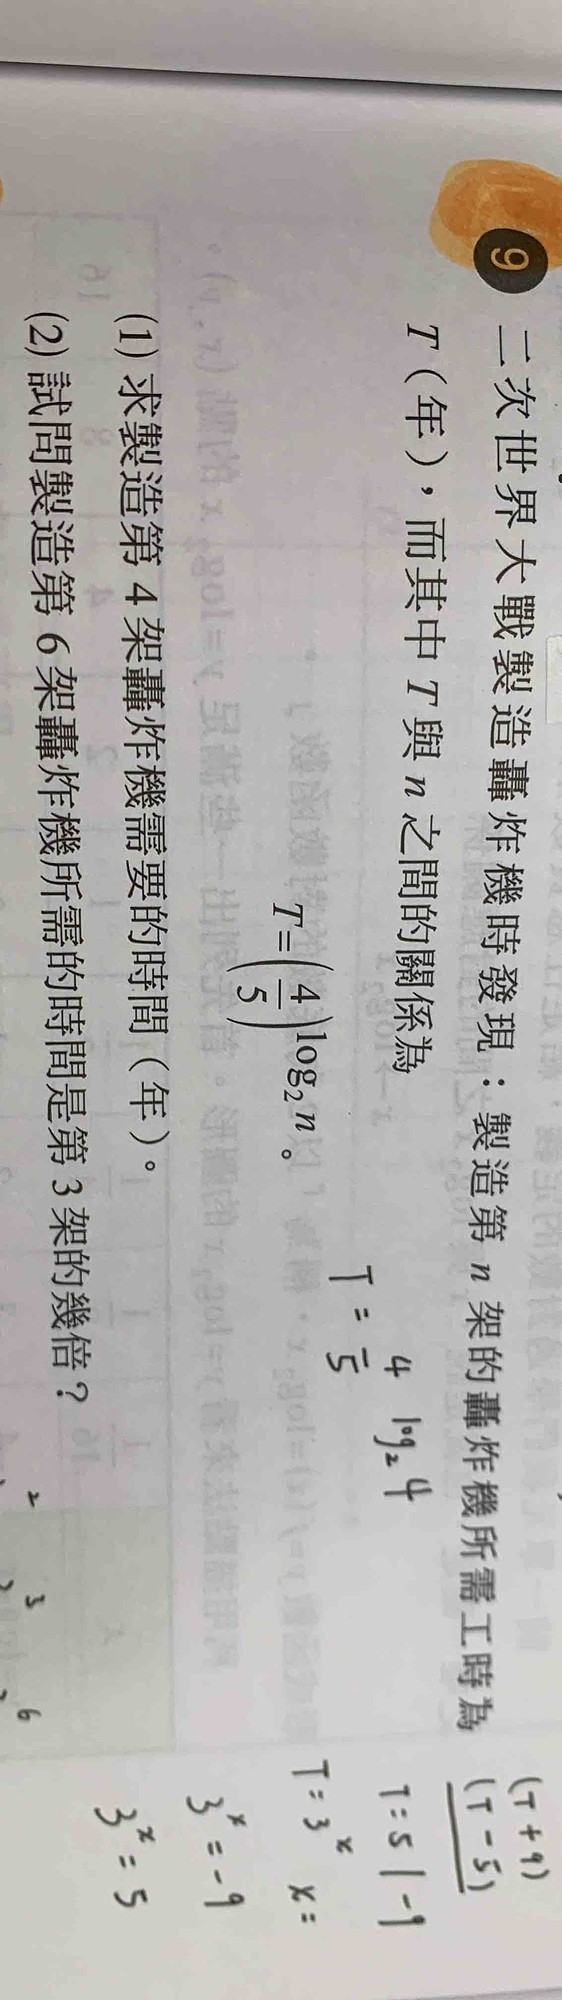 9
二次世界大戰製造轟炸機時發現：製造第 n 架的轟炸機所需工時為
T（年），而其中 T 與 n 之間的關係為
T=(4/5)^log₂n 。
(1) 求製造第 4 架轟炸機需要的時間（年）。
(2) 試問製造第 6 架轟炸機所需的時間是第 3 架的幾倍？
T = 4/5 log₂4
(T+9)
(T-5)
T=5 | -9
T=3ˣ x=
3ˣ=-9
3ˣ=5
2
3
6